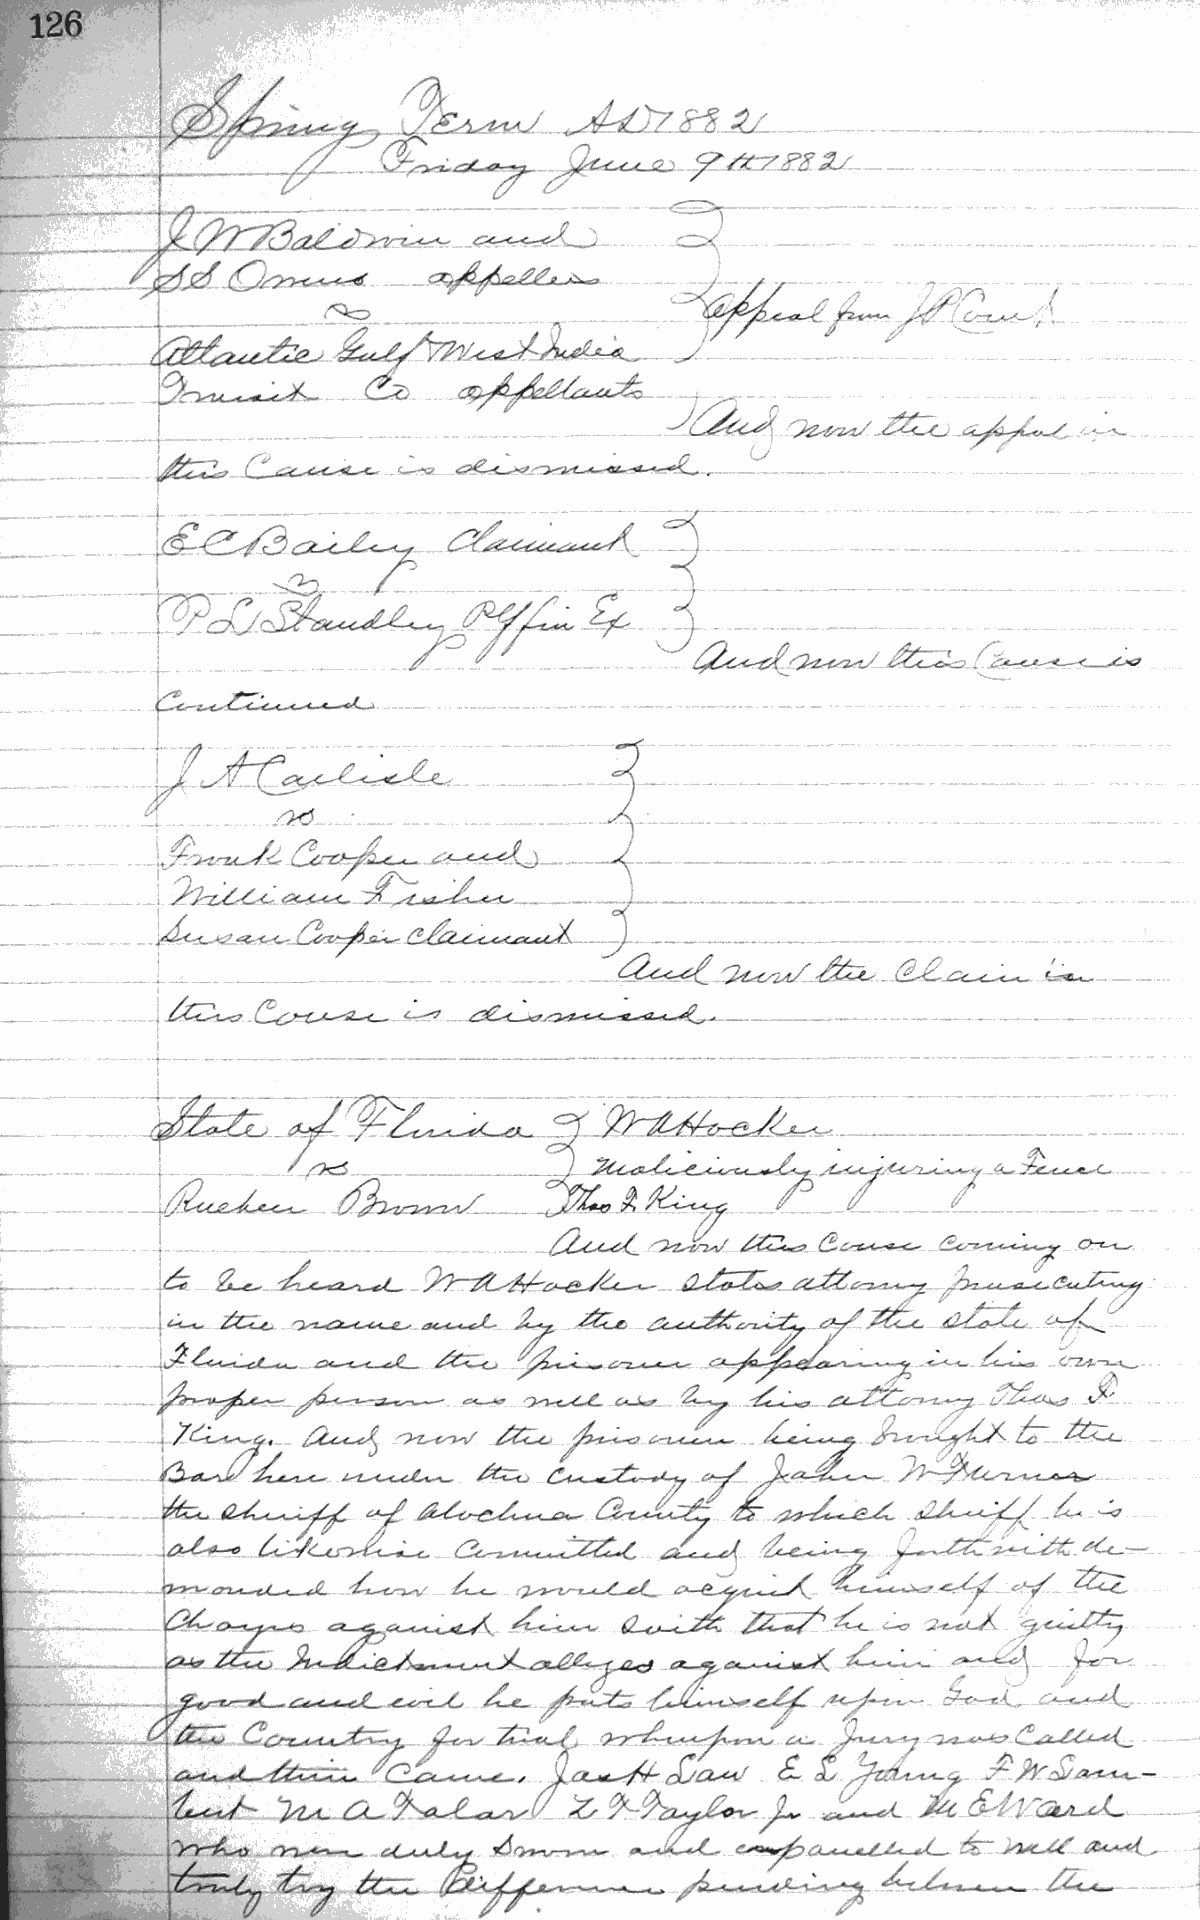 126
Spring Term AD 1882
Friday June 9th 1882
J W Baldwin and
S S appellees
vs
Appeal from J P Court
Atlantic Gulf West India
Transit Co appellants
And now the appeal in
this Cause is dismissed.
E C Bailey Claimant
vs
P L Standley Plff in Ex
And now this Cause is
Continued
J A Carlisle
vs
Frank Cooper and
William Fisher
Susan Cooper Claimant
And now the Claim in
this Cause is dismissed.
State of Florida W A Hocker
vs Maliciously injuring a Fence
Brown Thos F King
And now this Cause coming on
to be heard W A Hocker States attorny prosecuting
in the name and by the authority of the state of
Florida and the prisoner appearing in his own
proper person as well as by his attorny Thos F
King. And now the prisoner being brought to the
Bar here under the custody of John W Turner
the Sheriff of Alachua County to which Sheriff he is
also likewise Committed and being forthwith de-
manded how he would acquit himself of the
Charges against him saith that he is not guilty
as the Indictment alleges against him and for
good and evil he puts himself upon God and
the Country for trial whereupon a Jury was Called
and then came. Jas H Law E L Young F W Lam-
bert M A L T Taylor Jr and M E Ward
who were duly sworn and empanelled to well and
truly try the differrence pending between the